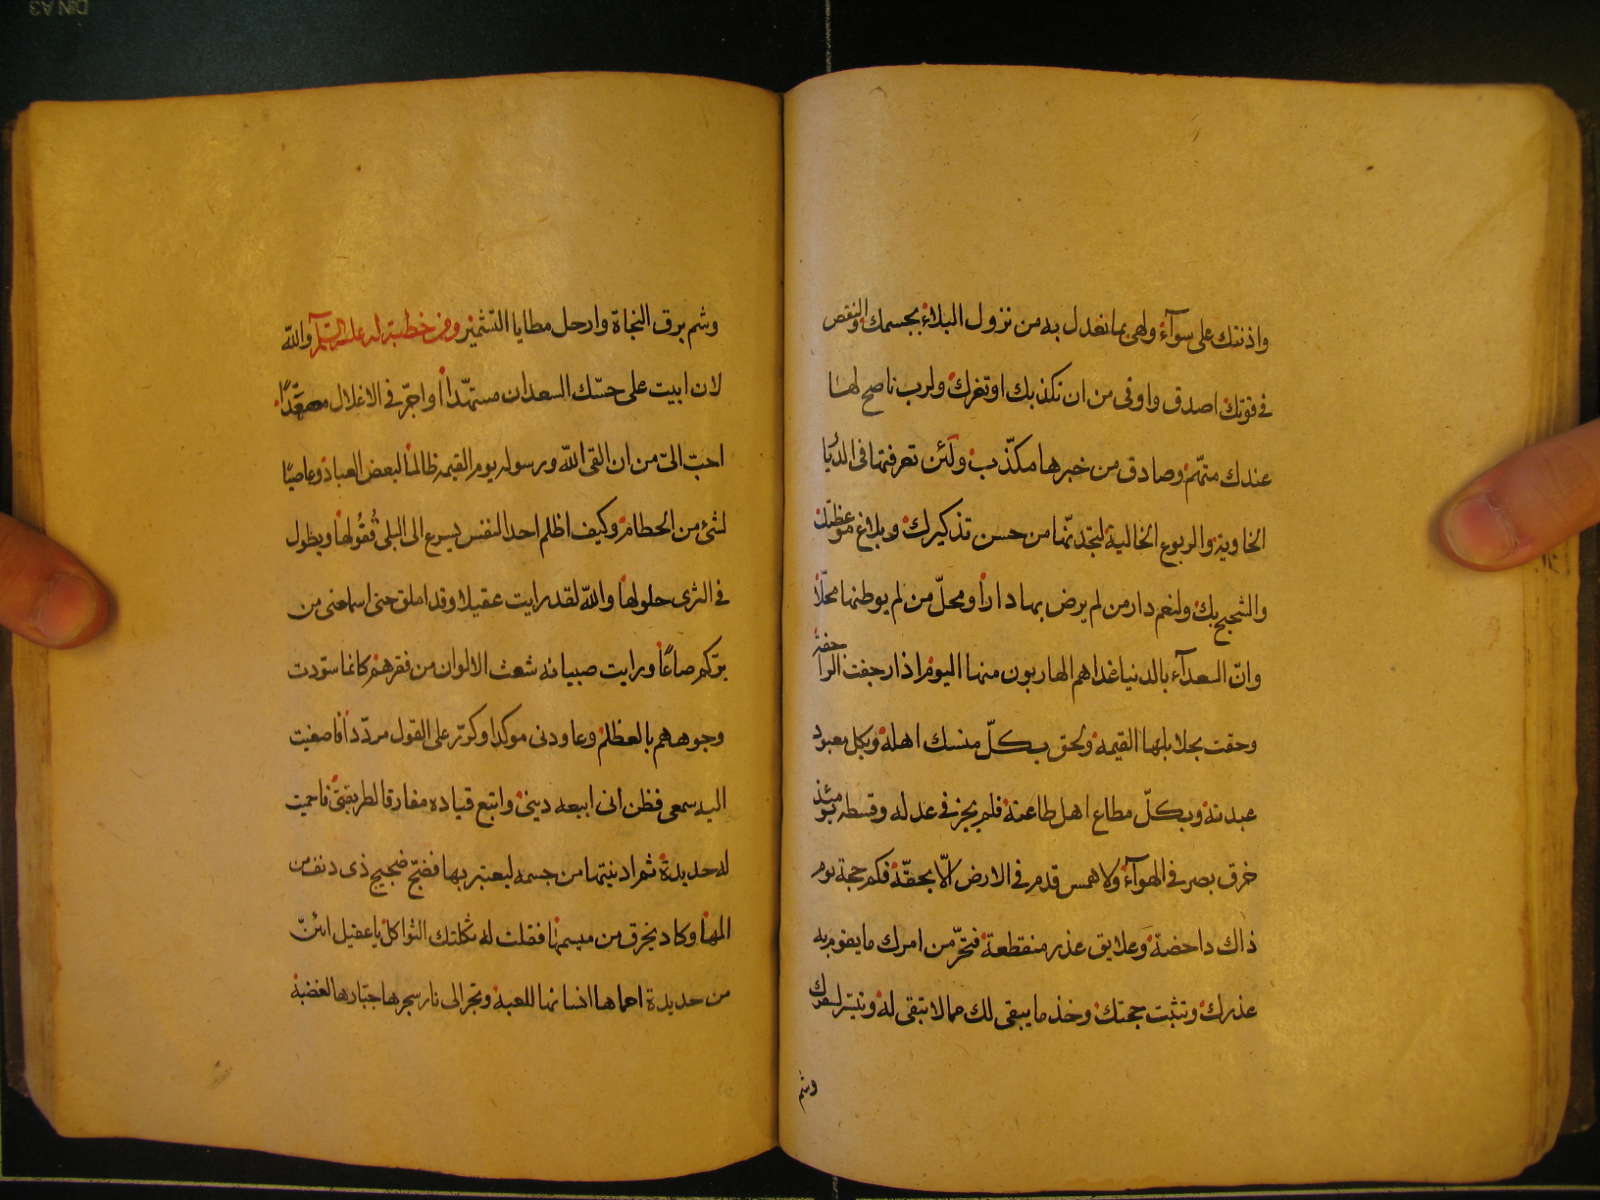 واذنتك على سوآء ولهى بما تعدل به من نزول البلاء بجسمك والنقص
فى قوتك اصدق واوفى من ان تكذبك او تغرك ولرب ناصح لها
عندك متهم وصادق من خبرها مكذب ولئن تعرفتها فى الديا
الخاوية والربوع الخالية لتجدنها من حسن تذكيرك وبلاغ موعظتك
والشحيح بك ولنعم دار من لم يرض بها دارا ومحل من لم يوطنها محلا
وان السعدآء بالدنيا غدا هم الهاربون منها اليوم اذا رجفت الراجفة
وحقت بجلايلها القيمه ولحق بكل منسك اهله وبكل معبود
عبدته وبكل مطاع اهل طاعته فلم يجز فى عدله وقسطه يومئذ
خرق بصر فى الهوآء ولا همس قدم فى الارض الا بحقه فكم حجة يوم
ذاك داحضة وعلايق عذر منقطعة فتحر من امرك ما يقوم به
عذرك وتثبت حجتك وخذ ما يبقى لك مما لا تبقى له وتيسر لسفرك
وشم
وشم برق النجاة وارحل مطايا التشمير ومن خطبة له عليه السلام والله
لان ابيت على حسك السعدان مسهدا او اجر فى الاغلال مصفدا
احب الى من ان القى الله ورسوله يوم القيمه ظالما لبعض العباد وغاصبا
لشئ من الحطام وكيف اظلم احدا لنفس يسرع الى البلى قفولها ويطول
فى الثرى حلولها والله لقد رايت عقيلا وقد املق حتى استماحنى من
بركم صاعا ورايت صبيانه شعث الالوان من فقرهم كانما سودت
وجوههم بالعظلم وعاودنى موكدا وكرر على القول مرددا فاصغيت
اليه سمعى فظن انى ابيعه دينى واتبع قياده مفارقا لطريقتى فاحميت
له حديدة ثم ادنيتها من جسمه ليعتبر بها فضج ضجيج ذى دنف من
المها وكاد يخرق من ميسمها فقلت له ثكلتك الثواكل يا عقيل اتئن
من حديدة احماها انسانها للعبه وتجرنى الى نار سجرها جبارها لغضبه